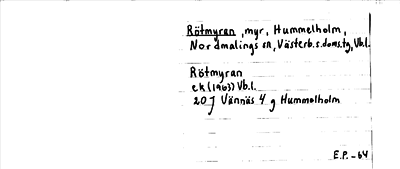 Rötmyran, myr, Hummelholm,
Nordmalings sn, Västerb. s. doms. tg, Vb.l.
Rötmyran
ek (1963) Vb.l.
20 J Vännäs 4 g Hummelholm
E.P. -64